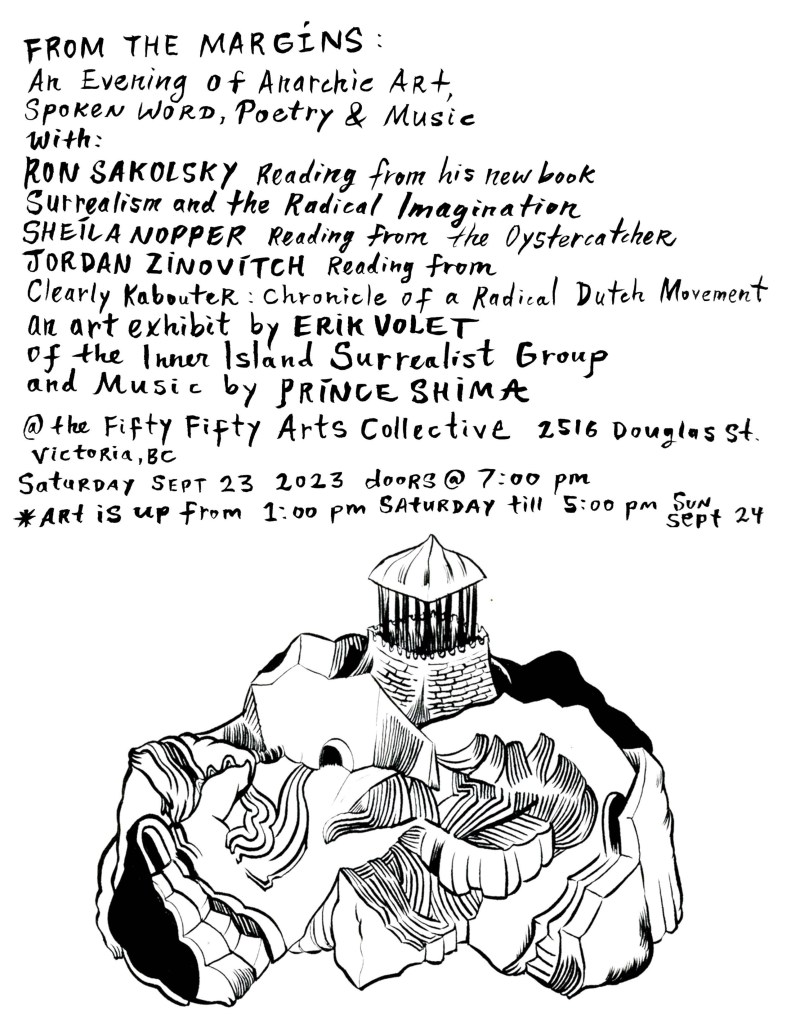 FROM THE MARGINS:
An Evening of Anarchic ART,
SPOKEN WORD, Poetry & Music
With:
RON SAKOLSKY Reading from his new book
Surrealism and the Radical Imagination
SHEILA NOPPER Reading from the Oystercatcher
JORDAN ZINOVITCH Reading from
Clearly Kabouter: Chronicle of a Radical Dutch Movement
an art exhibit by ERIK VOLET
of the Inner Island Surrealist Group
and Music by PRINCE SHIMA
@ the Fifty Fifty Arts Collective 2516 Douglas St.
Victoria, BC
Saturday SEPT 23 2023 doors @ 7:00 pm
*ART is up from 1:00 pm SATURDAY till 5:00 pm SUN
Sept 24